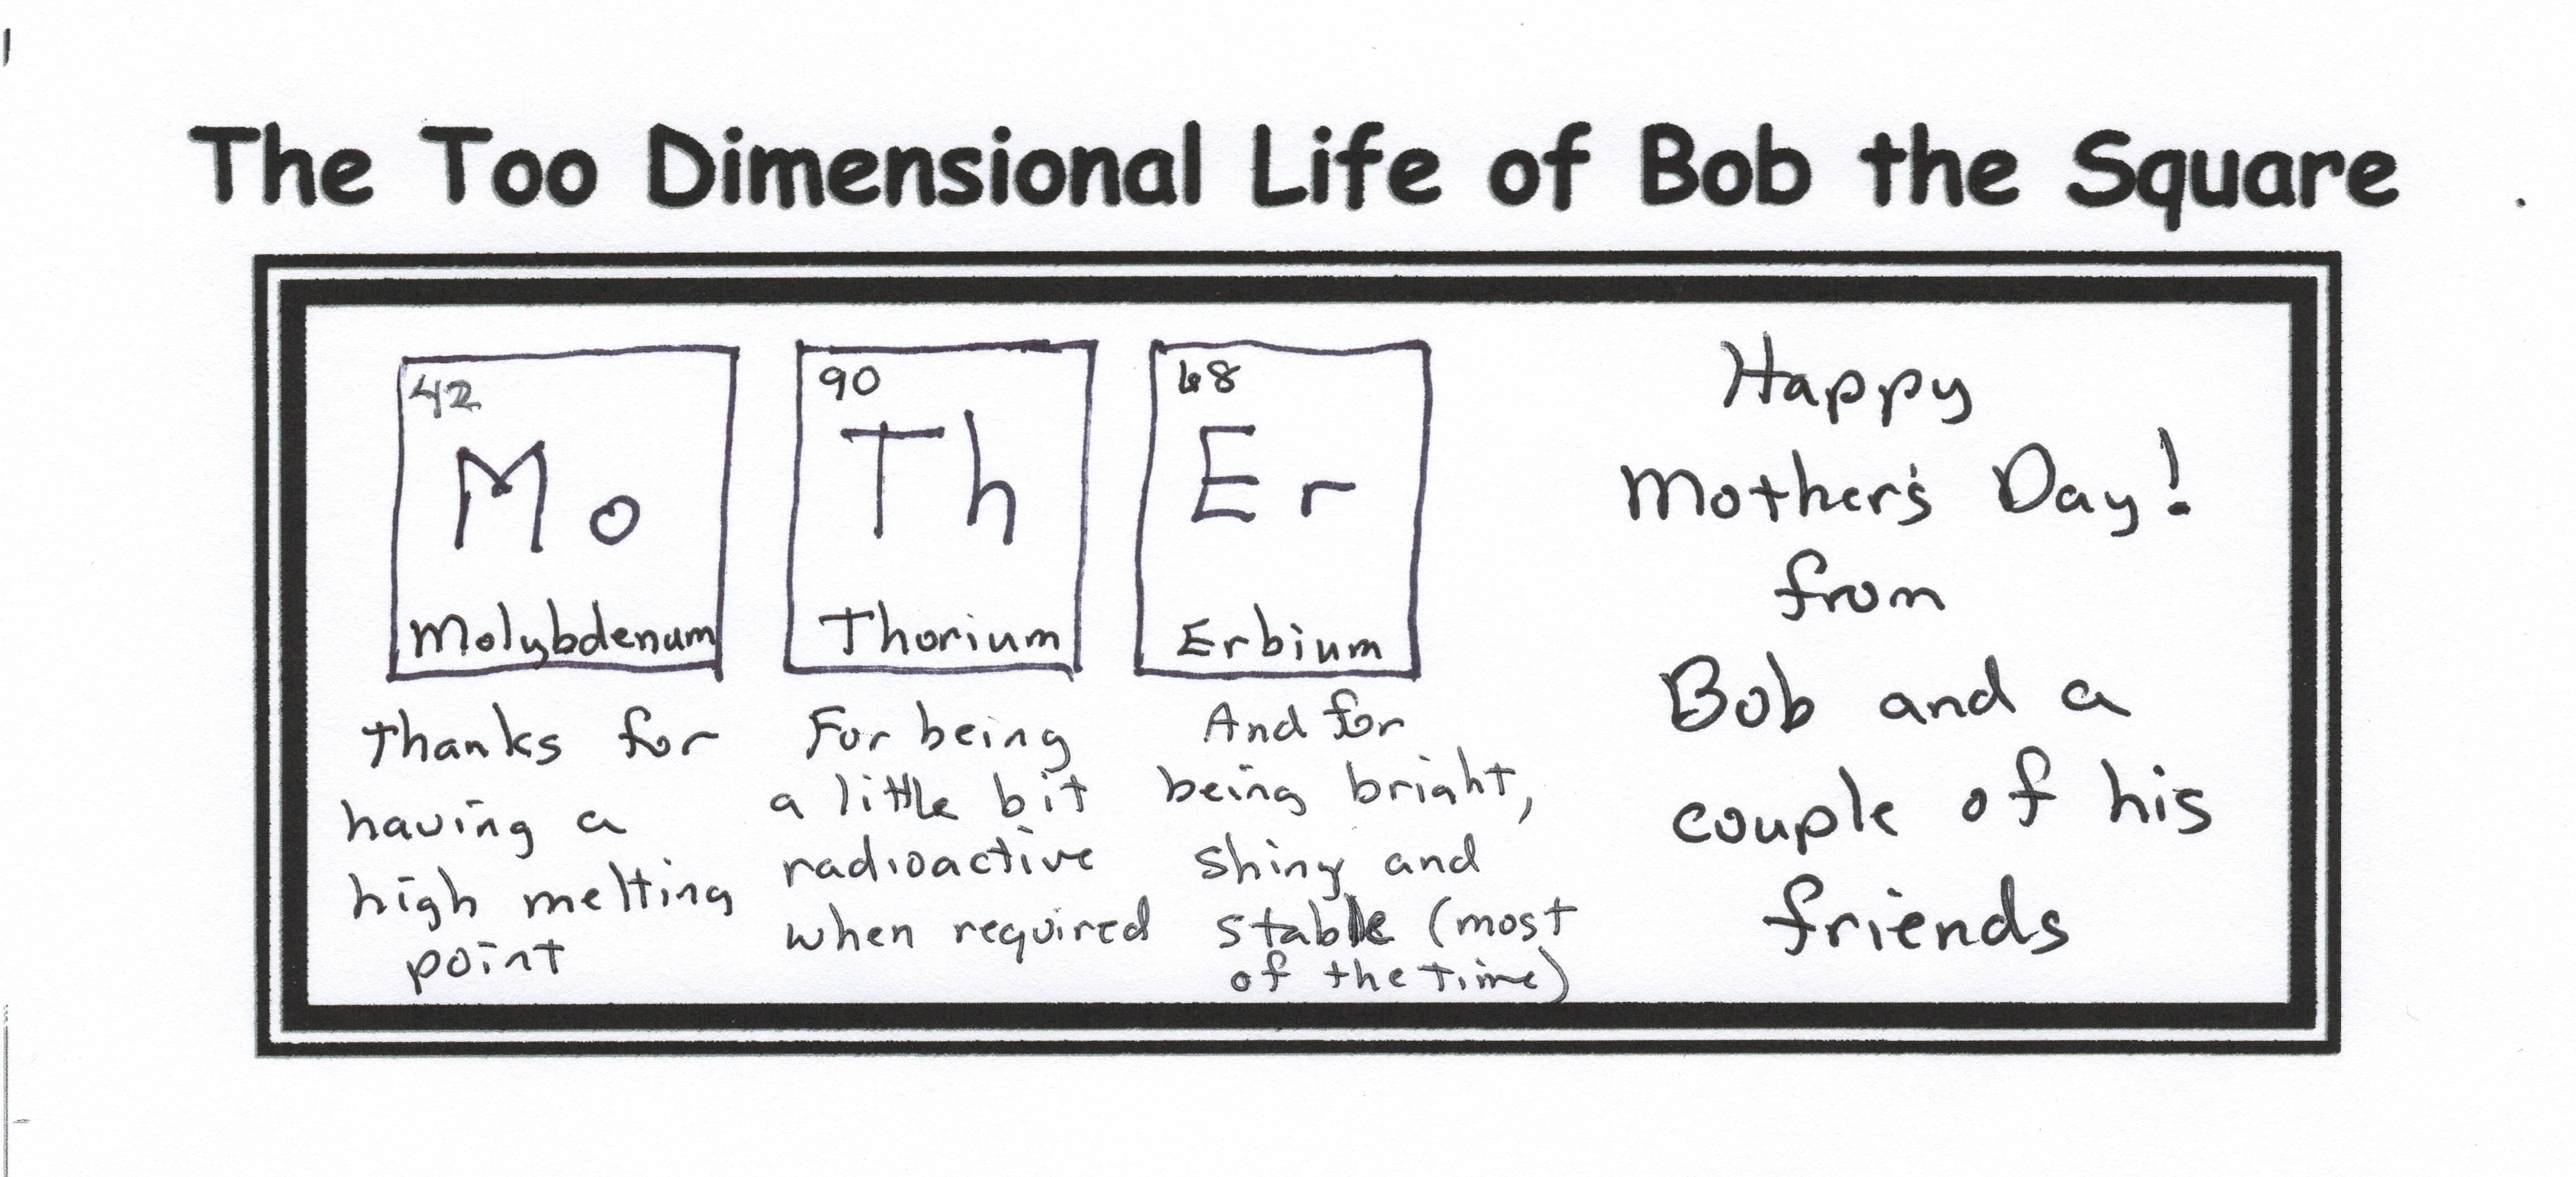 The Too Dimensional Life of Bob the Square
42
Mo
Molybdenum
Thanks for
having a
high melting
point
90
Th
Thorium
For being
a little bit
radioactive
when required
68
Er
Erbium
And for
being bright,
shiny and
stable (most
of the time)
Happy
Mother's Day!
from
Bob and a
couple of his
friends